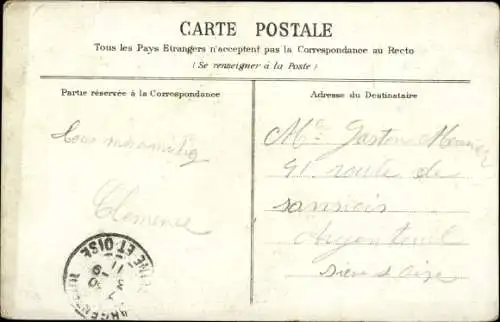 CARTE POSTALE
Tous les Pays Etrangers n'acceptent pas la Correspondance au Recto
(Se renseigner à la Poste)
Partie réservée à la Correspondance
Adresse du Destinataire
Clemence
Gaston
91 route de
sannois
Argenteuil
ET OISE